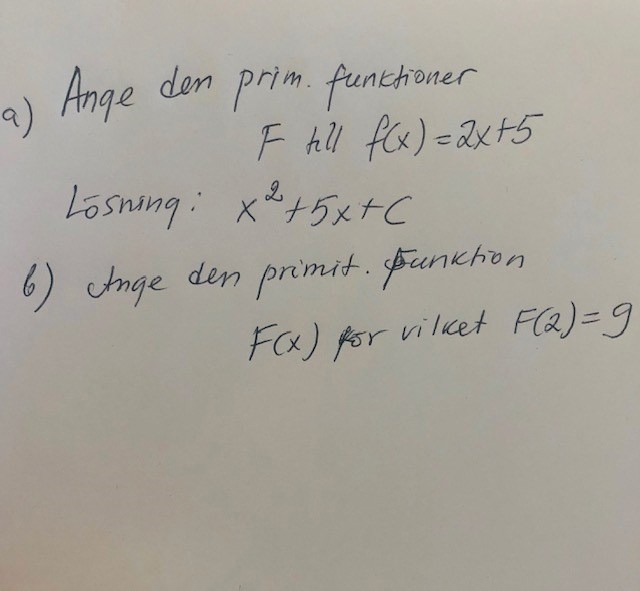 a) Ange den prim. funktioner
F till f(x)=2x+5
Lösning: x²+5x+C
b) Ange den primit. funktion
F(x) för vilket F(2)=9